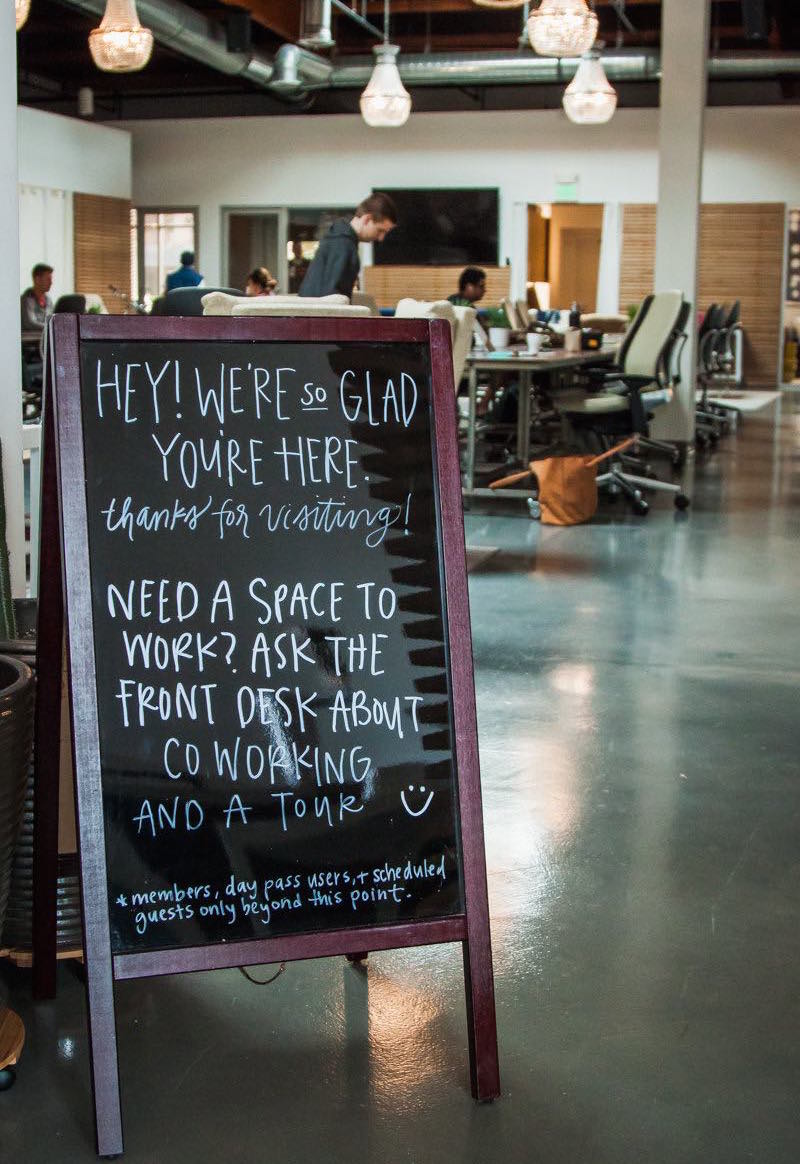 HEY! WE'RE so GLAD
YOU'RE HERE.
thanks for visiting!
NEED A SPACE TO
WORK? ASK THE
FRONT DESK ABOUT
CO WORKING
AND A TOUR
*members, day pass users, + scheduled
guests only beyond this point.